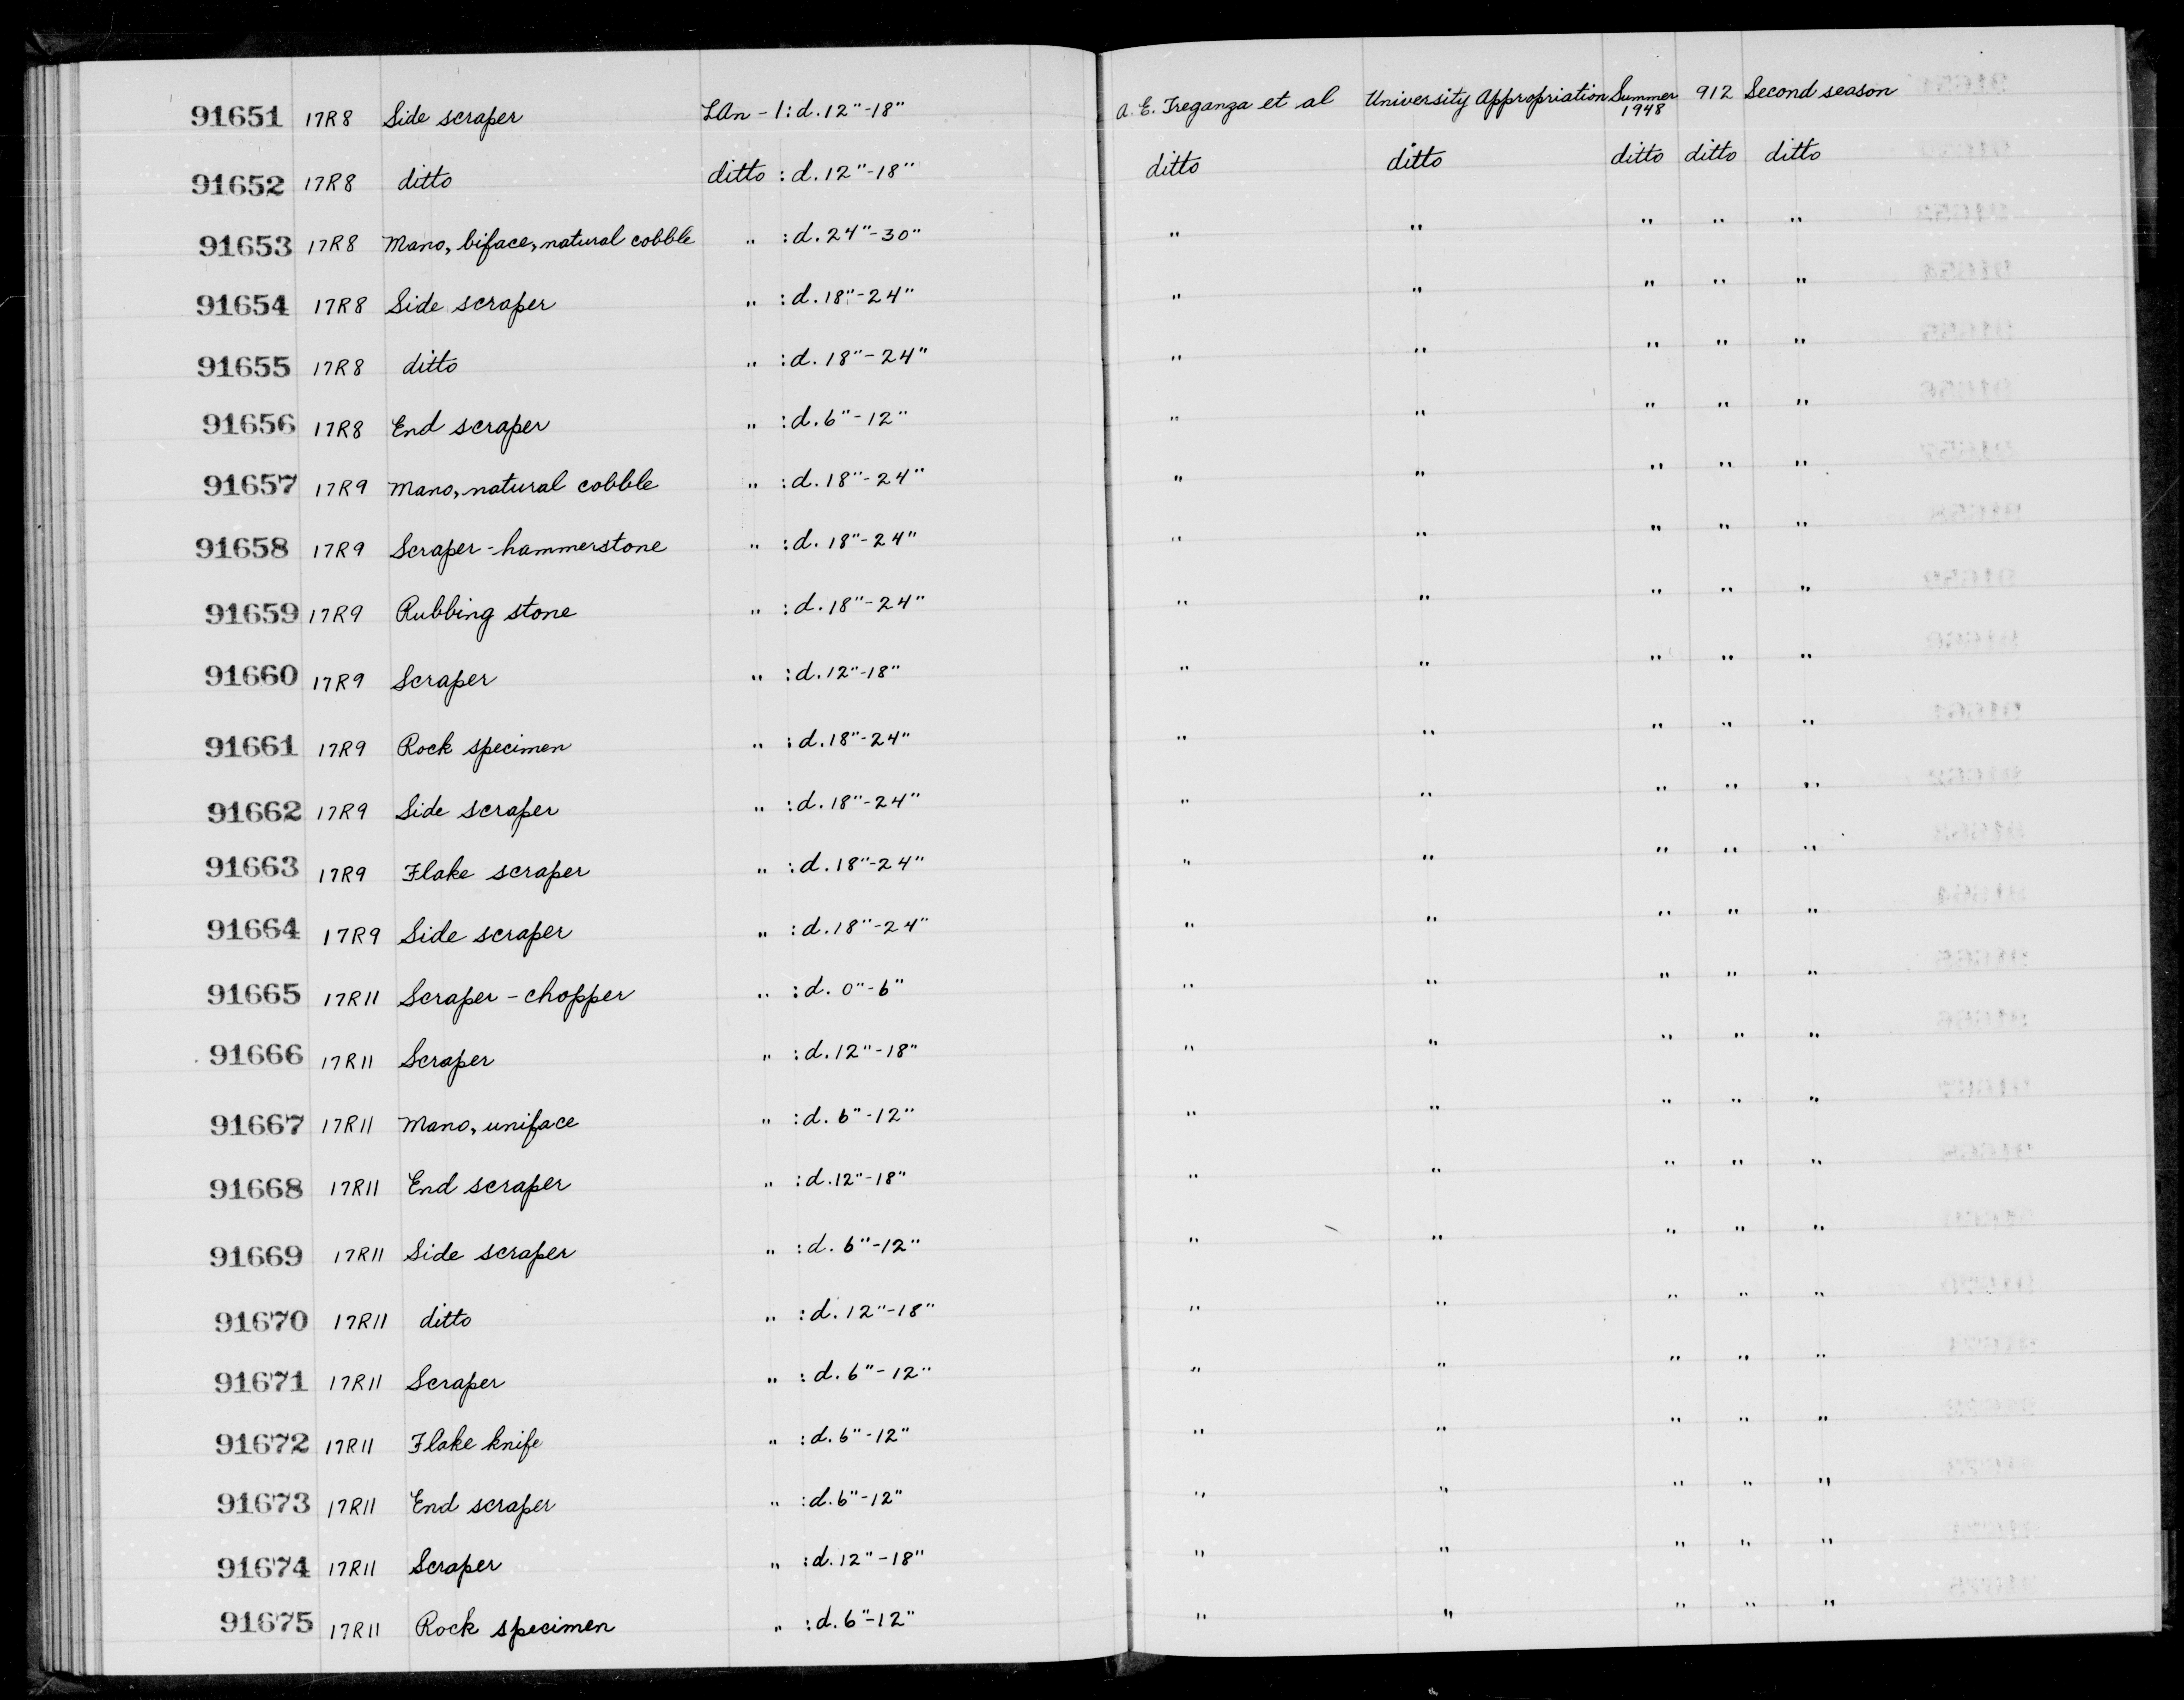 91651 17R8 Side scraper LAn-1: d. 12"-18" A. E. Treganza et al University Appropriation Summer 1948 912 Second season
91652 17R8 ditto ditto : d. 12"-18" ditto ditto ditto ditto ditto
91653 17R8 Mano, biface, natural cobble " : d. 24"-30" " " " " "
91654 17R8 Side scraper " : d. 18"-24" " " " " "
91655 17R8 ditto " : d. 18"-24" " " " " "
91656 17R8 End scraper " : d. 6"-12" " " " " "
91657 17R9 Mano, natural cobble " : d. 18"-24" " " " " "
91658 17R9 Scraper-hammerstone " : d. 18"-24" " " " " "
91659 17R9 Rubbing stone " : d. 18"-24" " " " " "
91660 17R9 Scraper " : d. 12"-18" " " " " "
91661 17R9 Rock specimen " : d. 18"-24" " " " " "
91662 17R9 Side scraper " : d. 18"-24" " " " " "
91663 17R9 Flake scraper " : d. 18"-24" " " " " "
91664 17R9 Side scraper " : d. 18"-24" " " " " "
91665 17R11 Scraper-chopper " : d. 0"-6" " " " " "
91666 17R11 Scraper " : d. 12"-18" " " " " "
91667 17R11 Mano, uniface " : d. 6"-12" " " " " "
91668 17R11 End scraper " : d. 12"-18" " " " " "
91669 17R11 Side scraper " : d. 6"-12" " " " " "
91670 17R11 ditto " : d. 12"-18" " " " " "
91671 17R11 Scraper " : d. 6"-12" " " " " "
91672 17R11 Flake knife " : d. 6"-12" " " " " "
91673 17R11 End scraper " : d. 6"-12" " " " " "
91674 17R11 Scraper " : d. 12"-18" " " " " "
91675 17R11 Rock specimen " : d. 6"-12" " " " " "